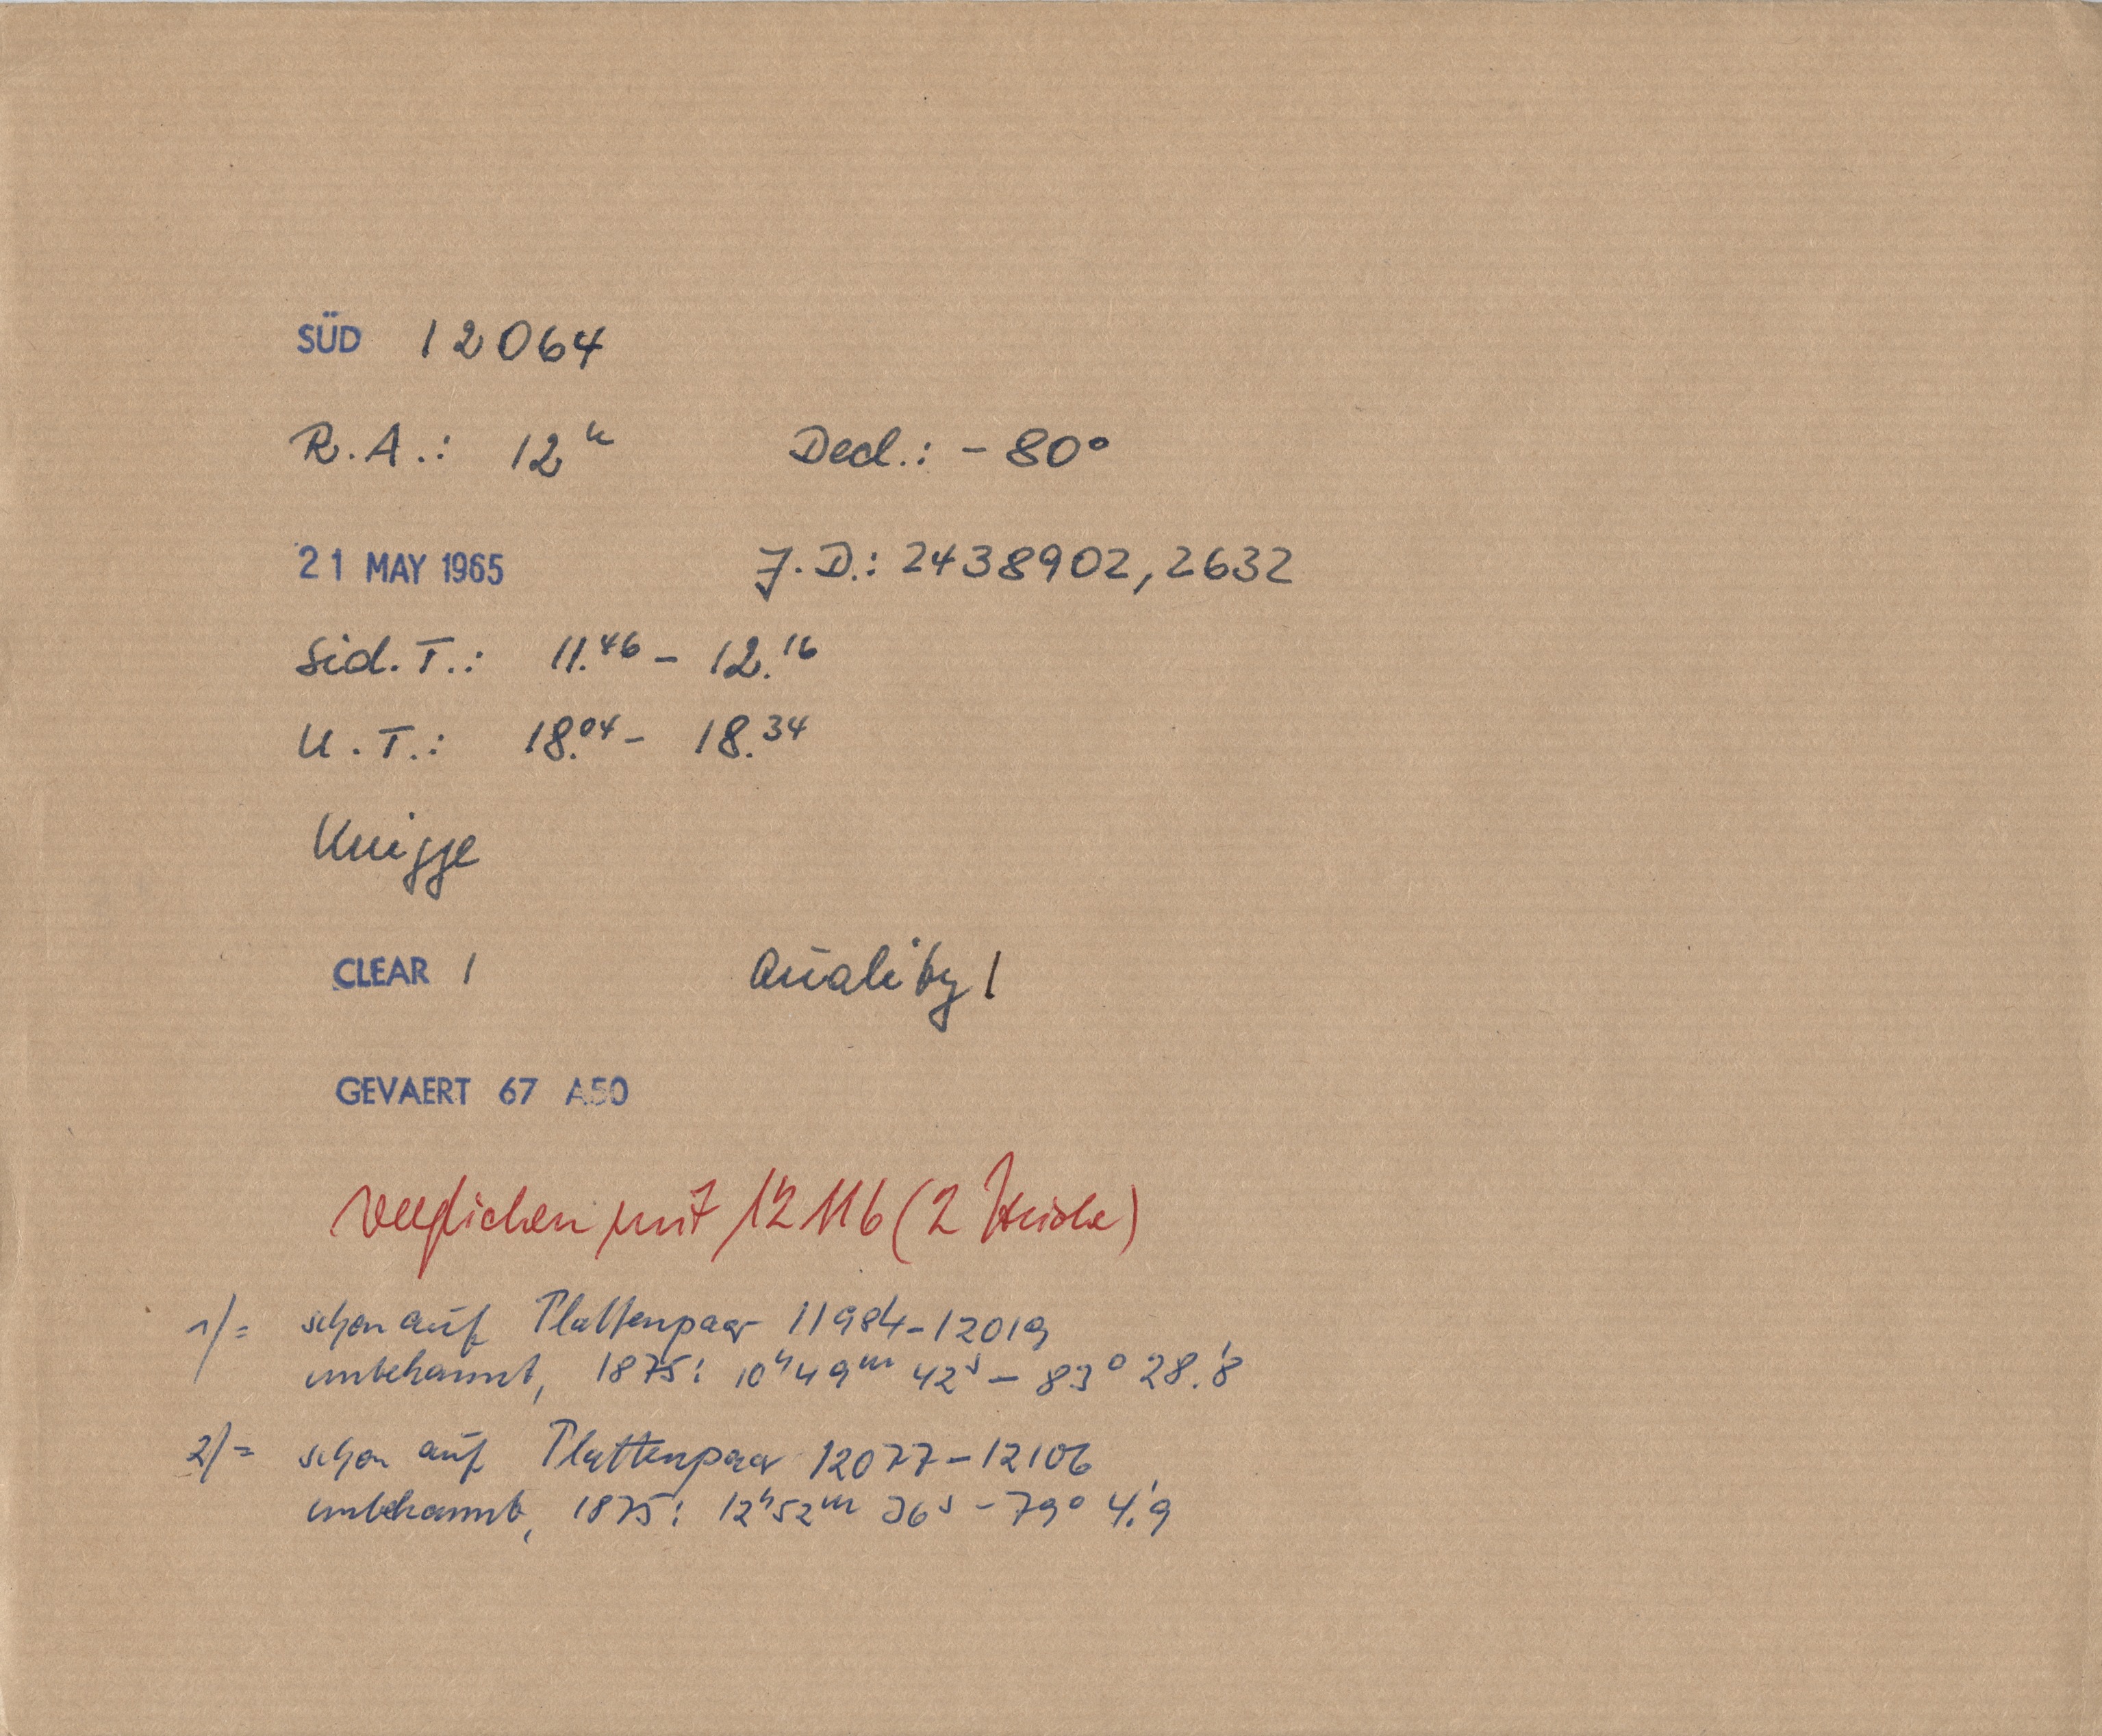 SÜD 12064
R.A.: 12ʰ Decl.: - 80°
21 MAY 1965 J.D.: 2438902,2632
Sid. T.: 11.⁴⁶ - 12.¹⁶
U.T.: 18.⁰⁴ - 18.³⁴
Knigge
CLEAR 1 Quality 1
GEVAERT 67 A50
verglichen mit 12116 (2 Striche)
1/= schon auf Plattenpaar 11984-12019
unbekannt, 1875: 10ʰ49ᵐ 42ˢ - 83° 28.'8
2/= schon auf Plattenpaar 12077-12106
unbekannt, 1875: 12ʰ52ᵐ 36ˢ - 79° 4.'9